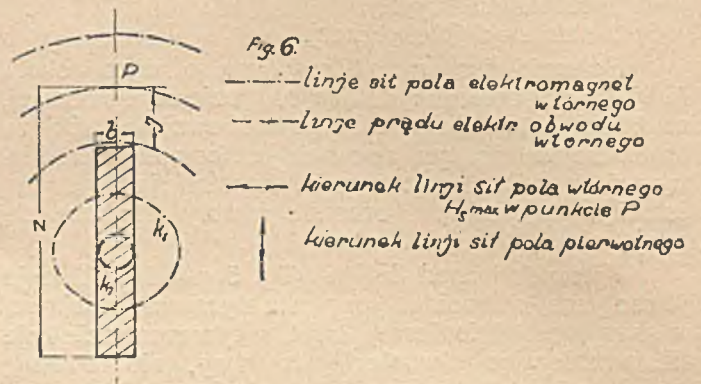 Fig. 6.
P
linje sił pola elektromagnet
wtórnego
linje prądu elektr. obwodu
wtórnego
b
kierunek linji sił pola wtórnego
Hs max w punkcie P
z
k₁
kierunek linji sił pola pierwotnego